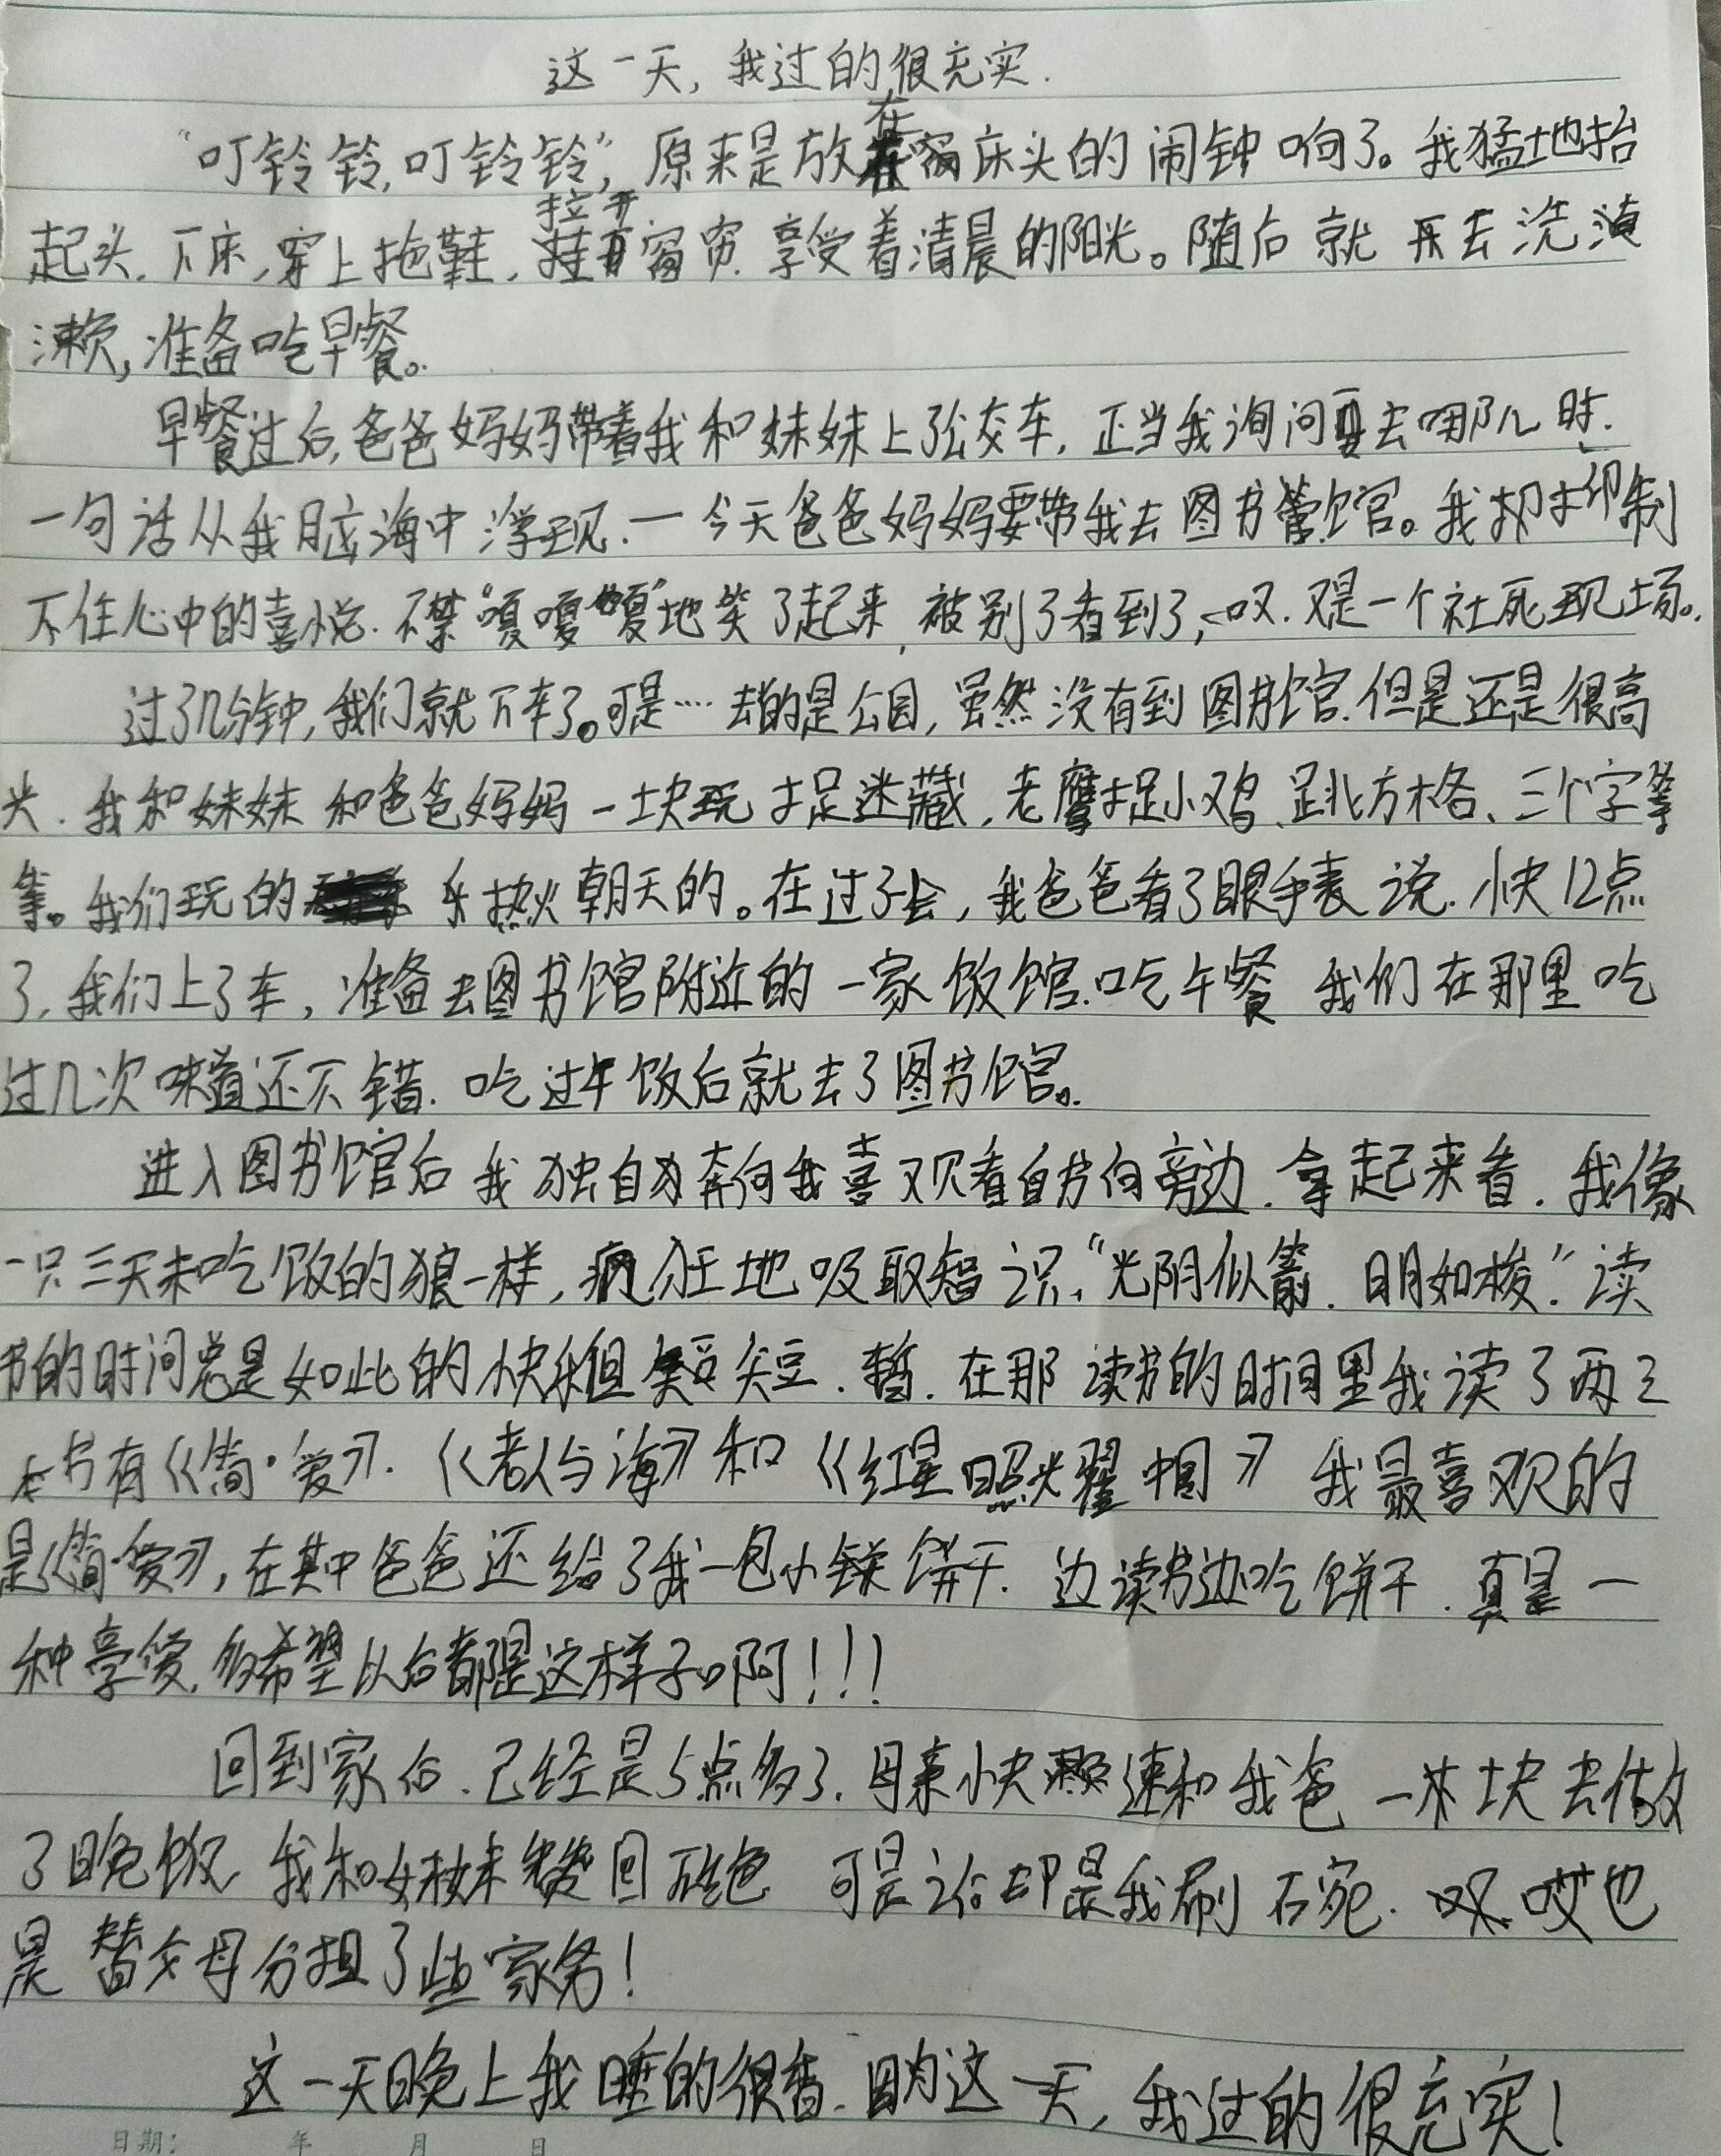 这一天，我过的很充实.
“叮铃铃，叮铃铃”，原来是放在床头的闹钟响了。我猛地抬
起头.下床，穿上拖鞋，拉开窗帘.享受着清晨的阳光。随后就再去洗漱
濑，准备吃早餐。
早餐过后，爸爸妈妈带着我和妹妹上了公交车，正当我询问要去哪儿时.
一句话从我脑海中浮现.一今天爸爸妈妈要带我去图书馆。我抑制
不住心中的喜悦.不禁“嘎嘎嘎”地笑了起来，被别了看到了，叹.又是一个社死现场。
过了几分钟，我们就下车了。可是……去的是公园，虽然没有到图书馆.但是还是很高
兴.我和妹妹和爸爸妈妈一块玩捉迷藏，老鹰捉小鸡、跳方格、三个字等
等。我们玩的热火朝天的。在过了会，我爸爸看了眼手表说.快12点
了，我们上了车，准备去图书馆附近的一家饭馆.吃午餐 我们在那里吃
过几次味道还不错.吃过午饭后就去了图书馆。
进入图书馆后我独自奔向我喜欢看的书的旁边.拿起来看.我像
一只三天未吃饭的狼一样，疯狂地吸取知识，“光阴似箭.日月如梭.”读
书的时间总是如此的快乐但短暂.在那读书的时间里我读了两三
本书有《简·爱》.《老人与海》和《红星照耀中国》我最喜欢的
是《简·爱》，在其中爸爸还给了我一包小饼干.边读书边吃饼干.真是一
种享受.多希望以后都是这样子啊！！！
回到家后.已经是5点多了.母亲快速和我爸一块去做
了晚饭 我和妹妹 可是之后却是我刷碗.哎也
是替父母分担了些家务！
这一天晚上我睡的很香.因为这一天，我过的很充实！
日期： 年 月 日